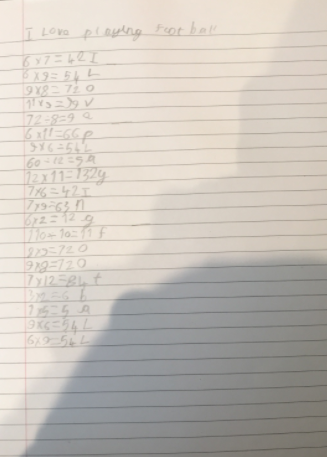 I Love playing football
6x7=42 I
6x9=54 L
9x8=72 O
11x9=99 V
72÷8=9 a
6x11=66 p
9x6=54 L
60÷12=5 a
12x11=132 y
7x6=42 I
7x9=63 n
6x2=12 g
110÷10=11 f
8x9=72 O
9x8=72 O
7x12=84 t
3x2=6 b
1x5=5 a
9x6=54 L
6x9=54 L